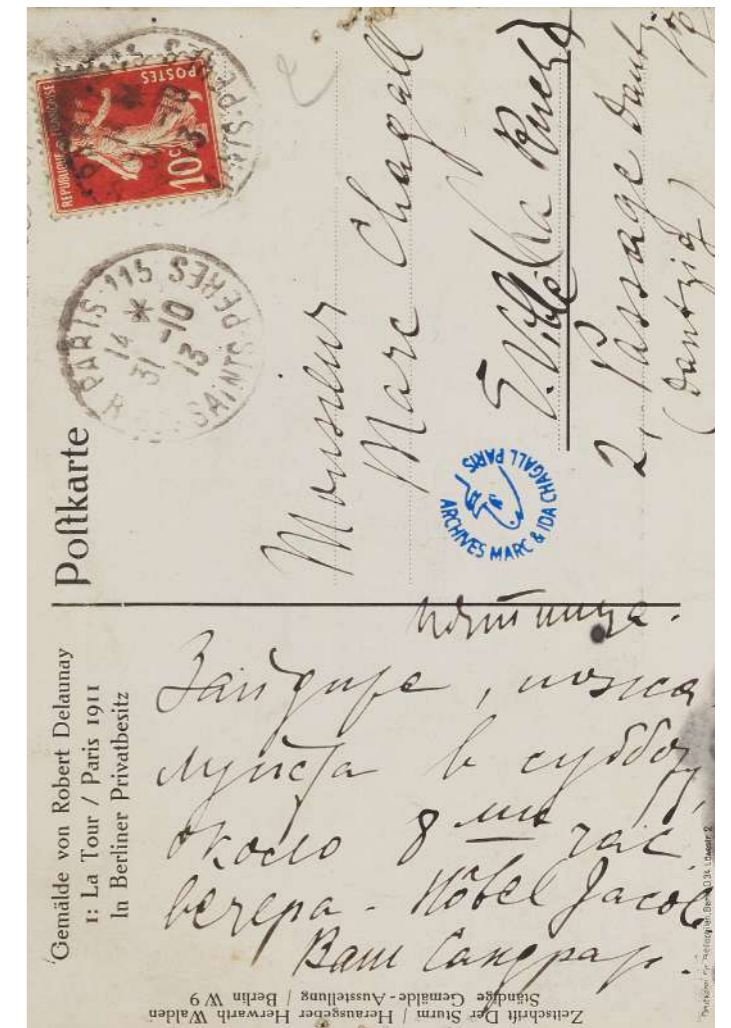 Gemälde von Robert Delaunay
1: La Tour / Paris 1911
In Berliner Privatbesitz
Poſtkarte
REPUBLIQUE FRANÇAISE
POSTES
10c
PARIS 115
14 *
31 -10
13
R. SAINTS-PERES
Monsieur
Marc Chagall
E. Ville La Ruche
2, Passage Dantzig
(Dantzig)
ARCHIVES MARC & IDA CHAGALL PARIS
пятница.
Зайдите, пожа
луйста в субботу,
около 8ми час
вечера - Hôtel Jacob
Ваш Сандрар.
Zeitschrift Der Sturm / Herausgeber Herwarth Walden
Ständige Gemälde-Ausstellung / Berlin W 9